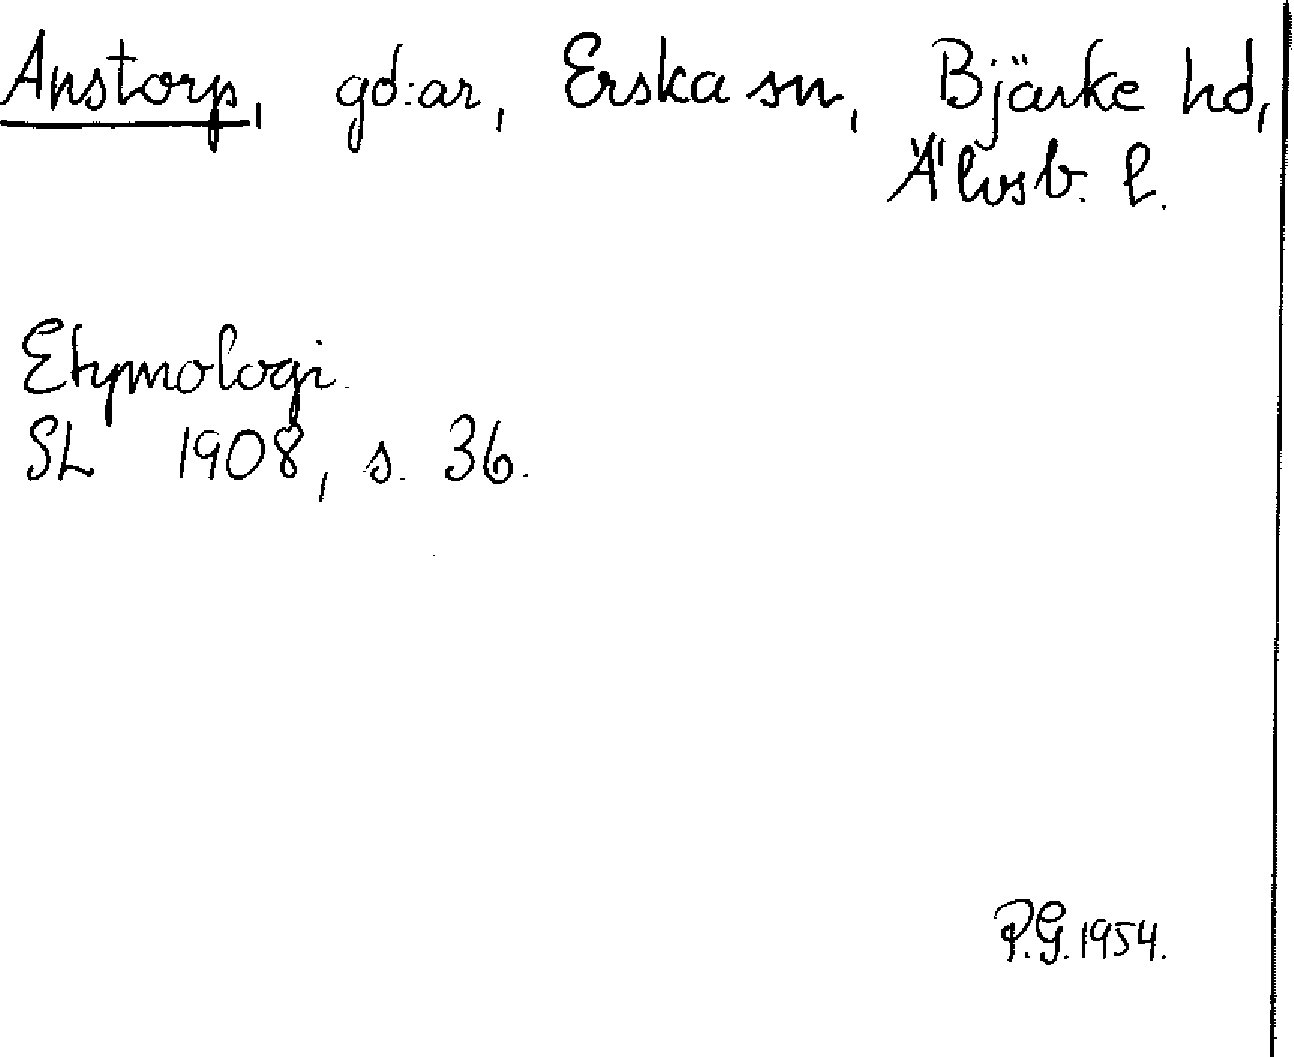 Anstorp, gd:ar, Erska sn, Bjärke hd,
Älvsb. l.
Etymologi.
SL 1908, s. 36.
P.G. 1954.